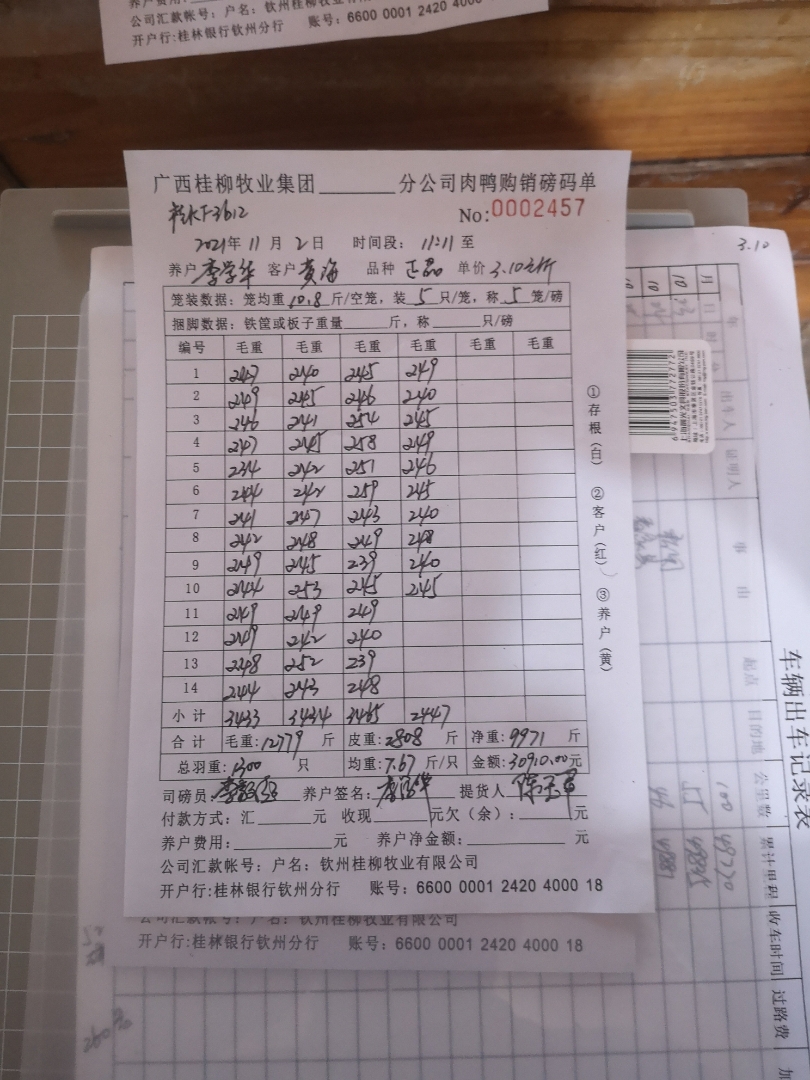 公司汇款帐号：户名：钦州桂柳牧业有限公司
开户行:桂林银行钦州分行 账号：6600 0001 2420 4000 18
广西桂柳牧业集团________分公司肉鸭购销磅码单
No:0002457
2021年 11月 2日 时间段：11:11至
养户 李学华 客户 黄海 品种 正品 单价 3.10元/斤
笼装数据：笼均重 10.8 斤/空笼，装 5 只/笼，称 5 笼/磅
捆脚数据：铁筐或板子重量______斤，称______只/磅
编号 毛重 毛重 毛重 毛重 毛重 毛重
1 247 240 245 249
2 249 245 246 240
3 246 241 254 245
4 247 245 258 249
5 234 242 251 246
6 244 242 259 245
7 241 247 243 240
8 242 248 249 248
9 249 245 239 240
10 244 253 245 245
11 249 249 249
12 249 242 240
13 248 252 239
14 244 243 248
小计 3433 3434 3465 2447
合计 毛重:12779 斤 皮重:2808 斤 净重:9971 斤
总羽重:1300 只 均重:7.67 斤/只 金额:30910.00元
司磅员: 养户签名: 提货人
付款方式：汇______元 收现______元欠（余）:______元
养户费用:______元 养户净金额:______元
公司汇款帐号：户名：钦州桂柳牧业有限公司
开户行：桂林银行钦州分行 账号：6600 0001 2420 4000 18
①存根（白） ②客户（红） ③养户（黄）
公司汇款帐号：户名：钦州桂柳牧业有限公司
开户行:桂林银行钦州分行 账号：6600 0001 2420 4000 18
3.10
车辆出车记录表
月
日
年
出车人
证明人
事由
起点
目的地
公里数
累计里程
收车时间
过路费
6947503772772